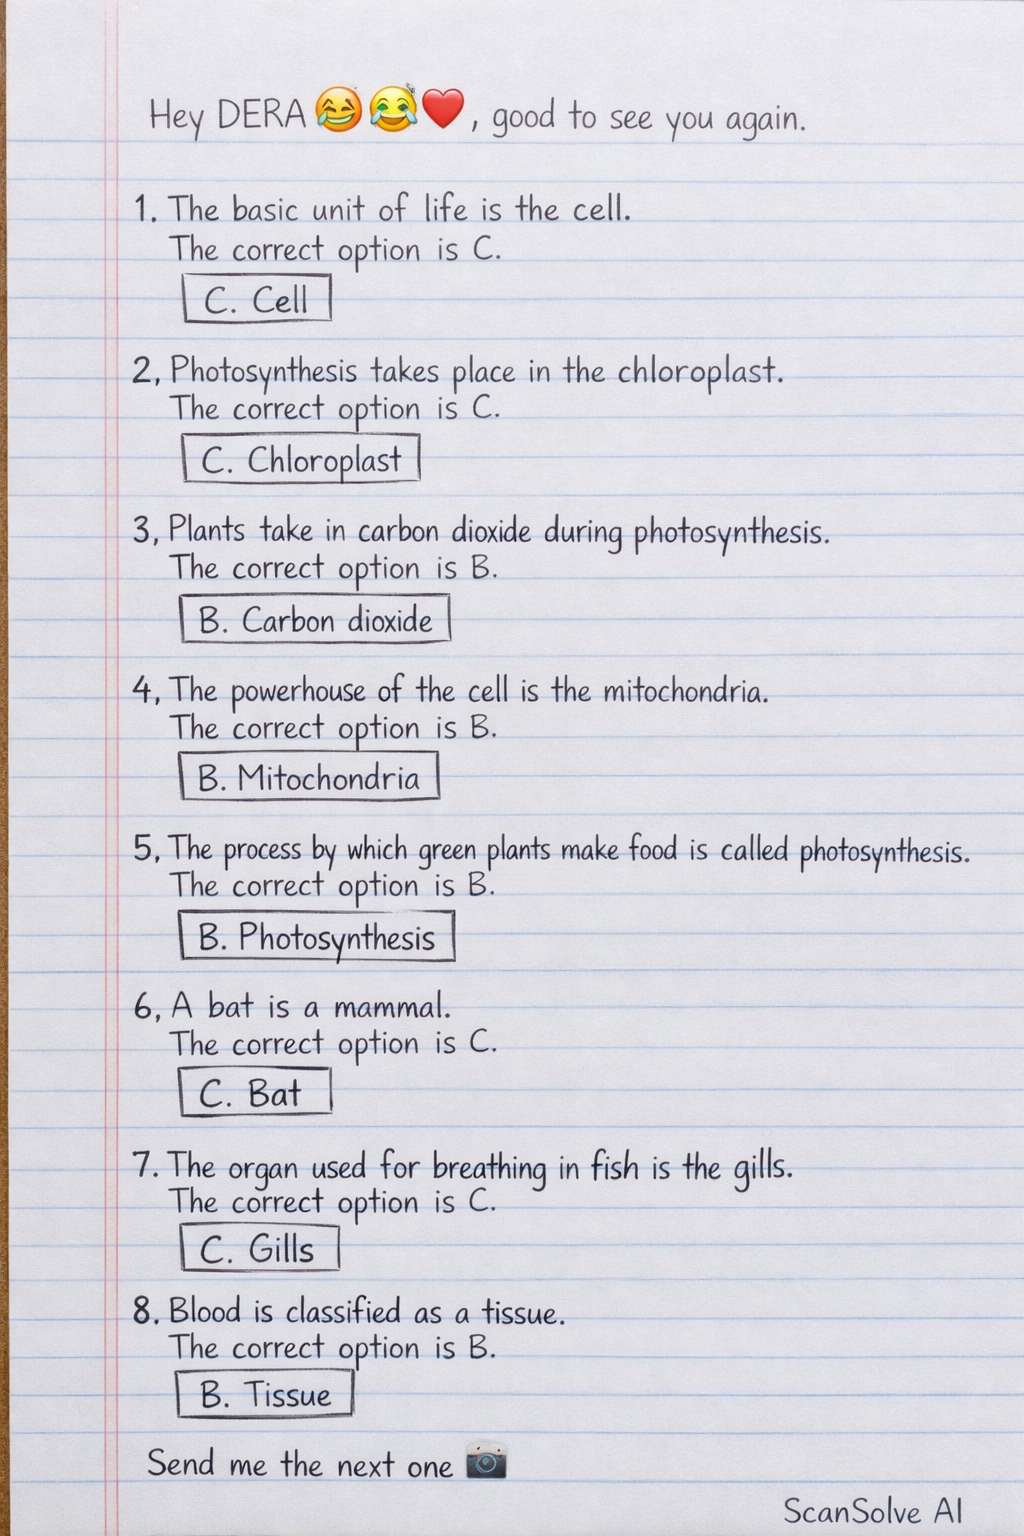 Hey DERA 😂😂❤️, good to see you again.
1. The basic unit of life is the cell.
The correct option is C.
C. Cell
2, Photosynthesis takes place in the chloroplast.
The correct option is C.
C. Chloroplast
3, Plants take in carbon dioxide during photosynthesis.
The correct option is B.
B. Carbon dioxide
4, The powerhouse of the cell is the mitochondria.
The correct option is B.
B. Mitochondria
5, The process by which green plants make food is called photosynthesis.
The correct option is B.
B. Photosynthesis
6, A bat is a mammal.
The correct option is C.
C. Bat
7. The organ used for breathing in fish is the gills.
The correct option is C.
C. Gills
8. Blood is classified as a tissue.
The correct option is B.
B. Tissue
Send me the next one 📷
ScanSolve AI